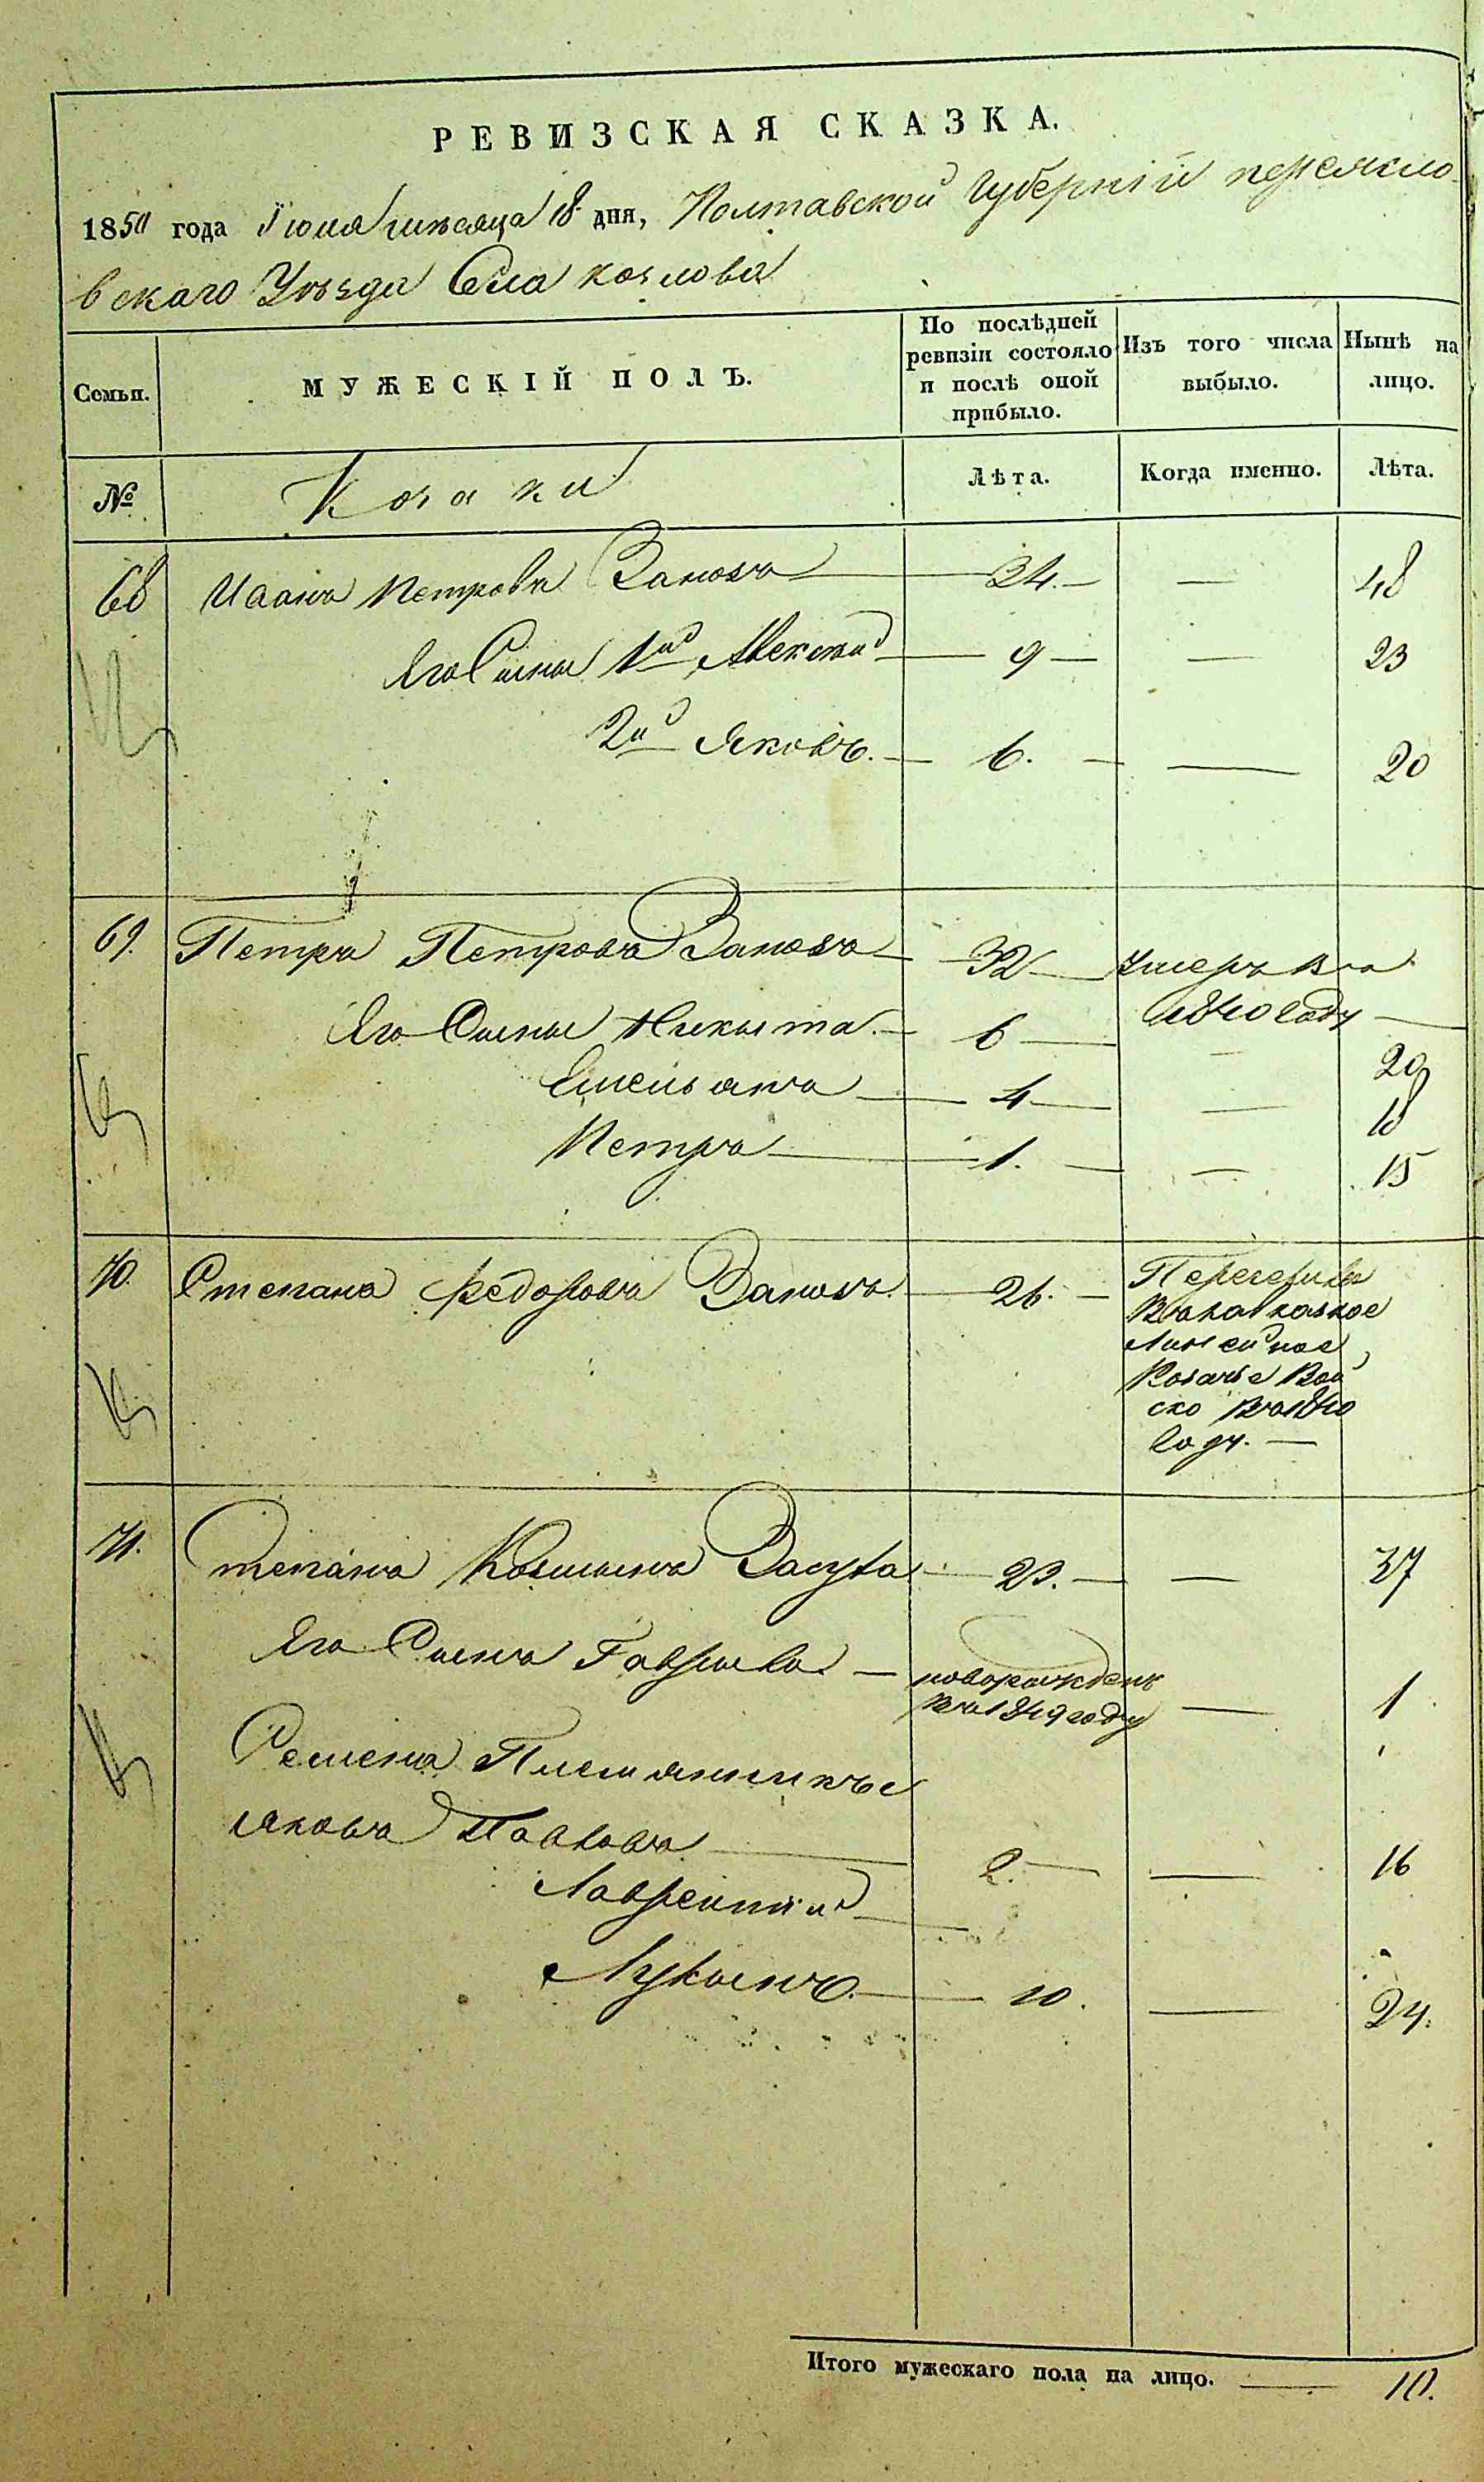 РЕВИЗСКАЯ СКАЗКА.
1850 года Іюля мѣсяца 18 дня, Полтавской Губерніи переясло
вскаго Уѣзда Села козлова
Семьи.
МУЖЕСКІЙ ПОЛЪ.
По послѣдней ревизіи состояло и послѣ оной прибыло.
Изъ того числа выбыло.
Ныне на лицо.
№
Козаки
Лѣта.
Когда именно.
Лѣта.
68 Иванъ Петровъ — 34. — — 48
Его Сыны 1й Алексѣй — 9 — — 23
2й Яковъ. — 6. — — 20
69. Петръ Петровъ — 32 — умеръ въ
1840 году —
Его Сыны Никита. — 6 — — 20
Емельянъ — 4 — — 18
Петръ — 1. — — 15
70. Степанъ Федоровъ — 26. — Перечесленъ
въ кавказкое
Линейное
Козачье Вой
ско въ 1840
году. —
71. Степанъ Козминъ Засуха — 23. — — 37
Его Сынъ Гаврило — новорожденъ
въ 1849 году — 1
Семена Племянники
Яковъ Павловъ — 2. — — 16
Лаврентій —
Лукьянъ. — 10. — 24.
Итого мужескаго пола на лицо. — 10.